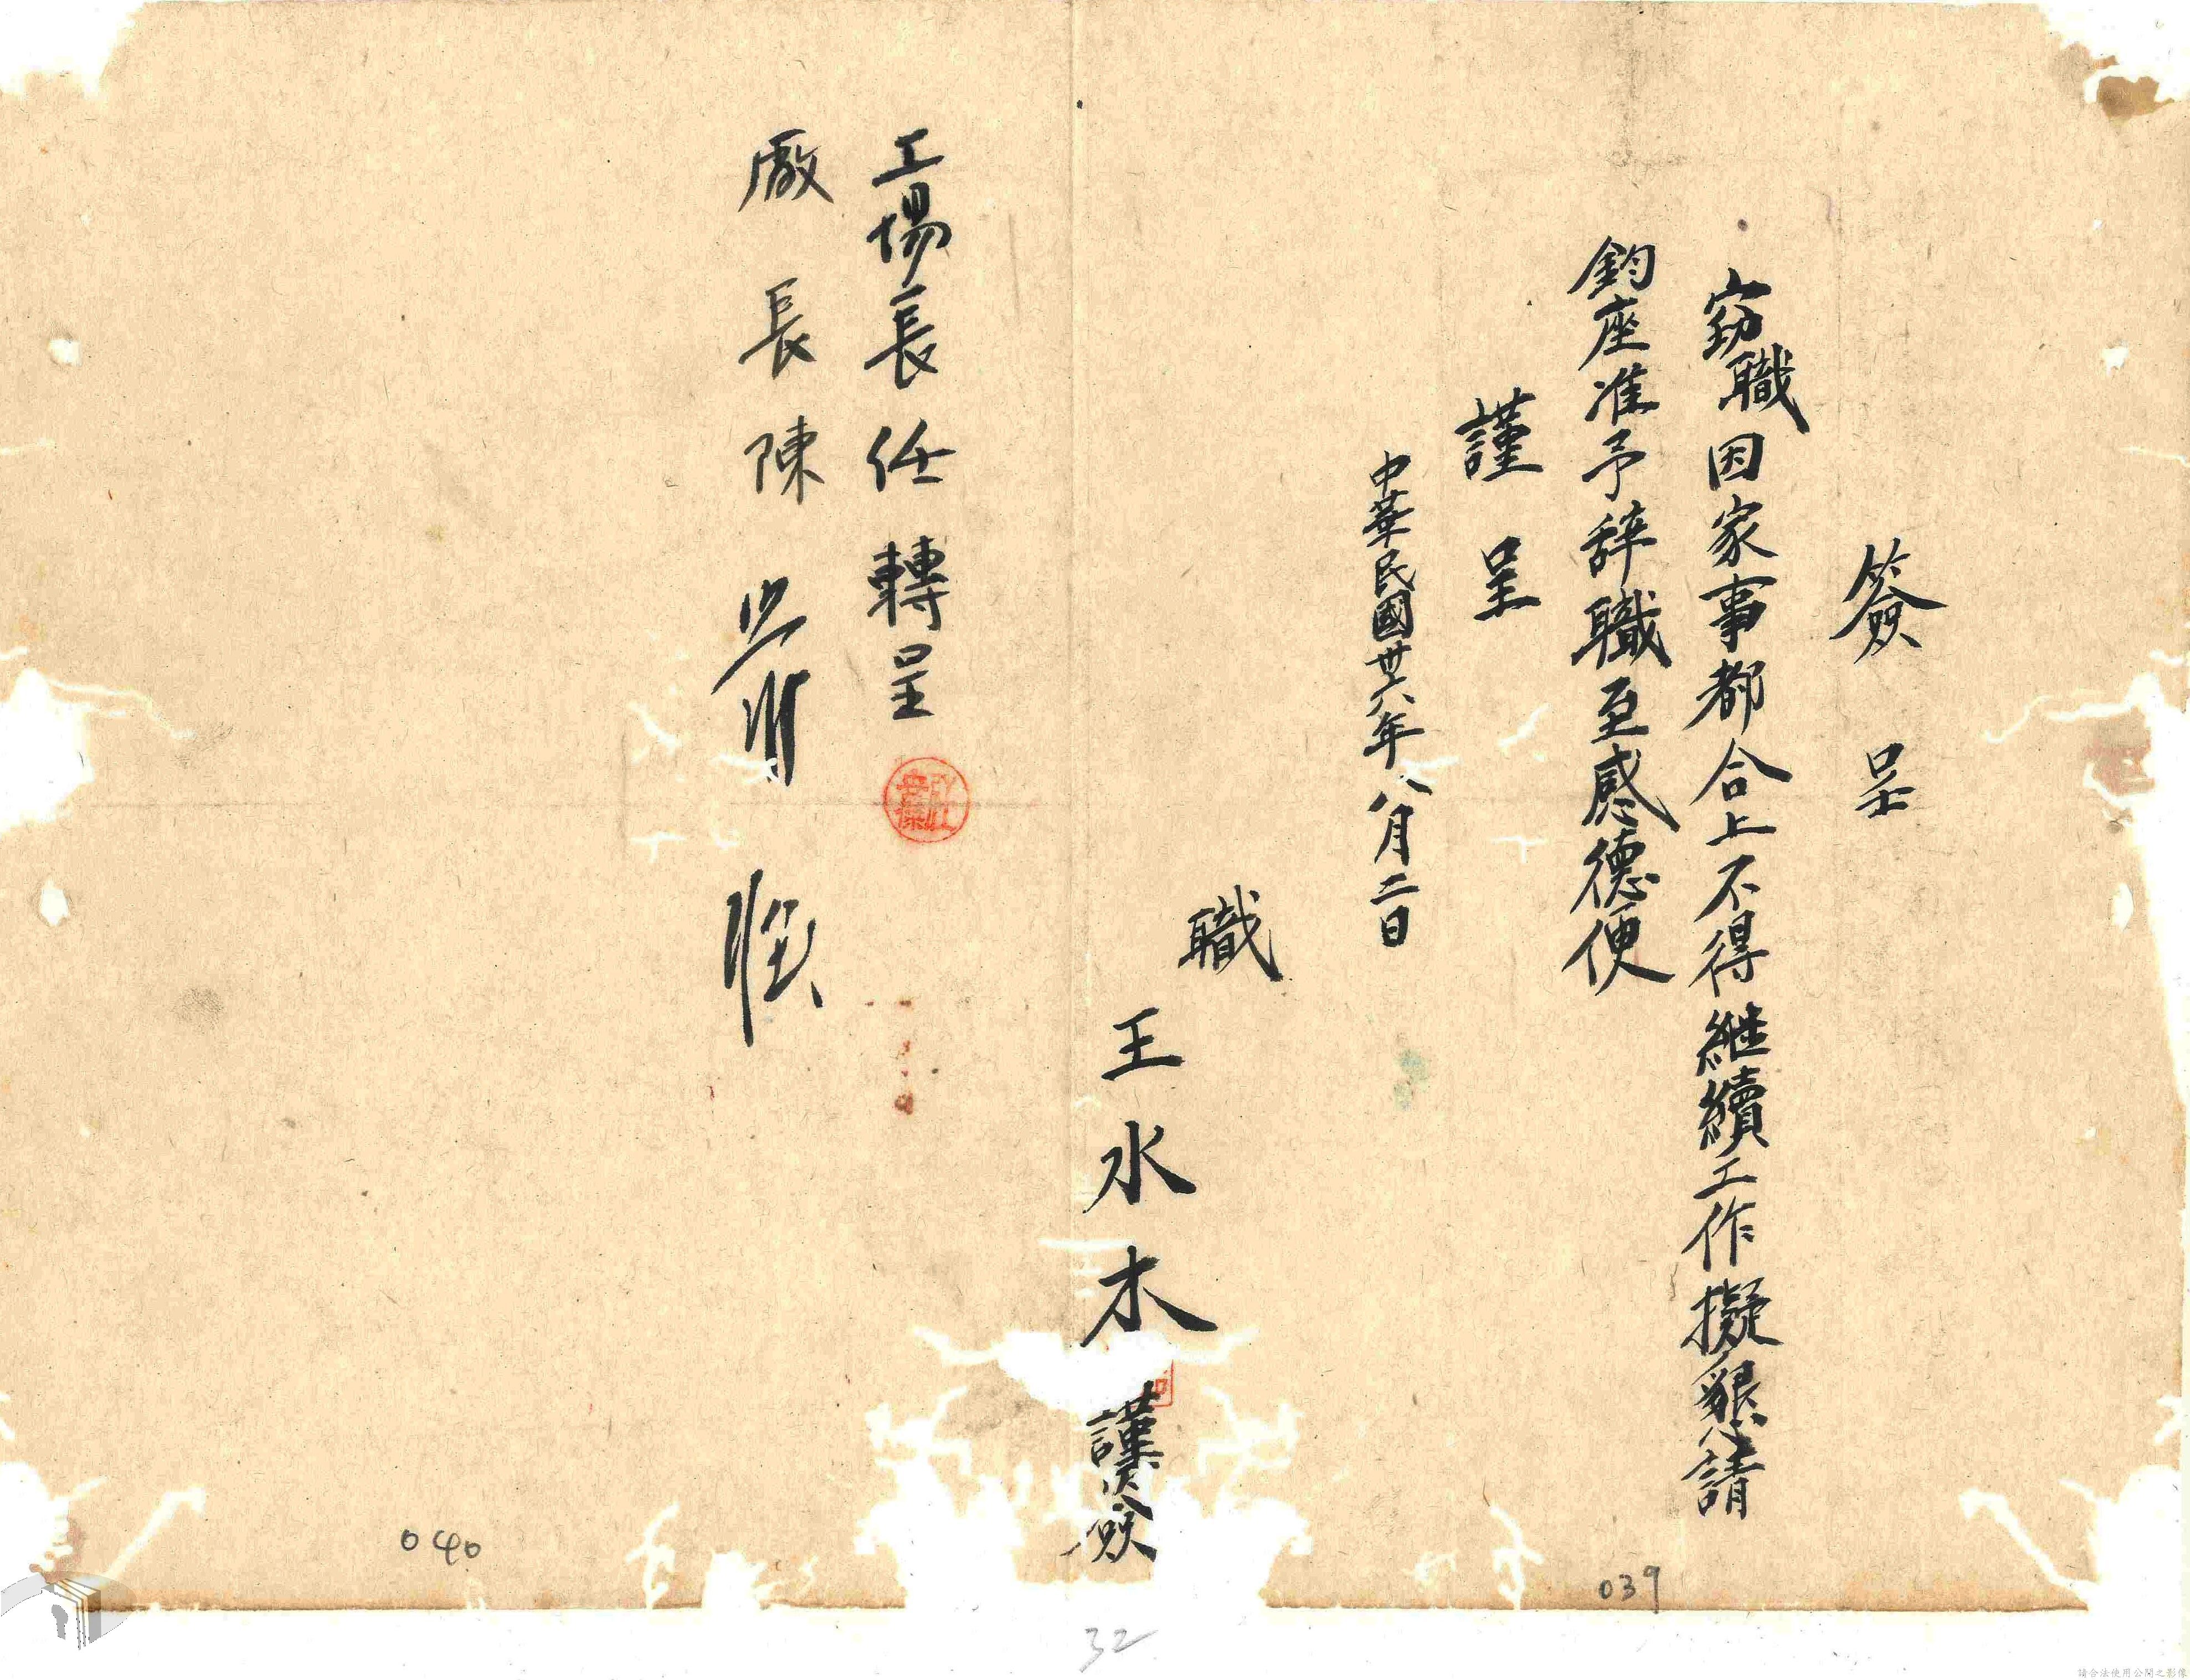 簽呈
窃職因家事都合上不得継續工作擬懇請
鈞座准予辞職至感德便
謹呈
中華民國卅六年八月二日
職
王水木
謹簽
工場長任轉呈
廠長陳
039
040
32
請合法使用公開之影像